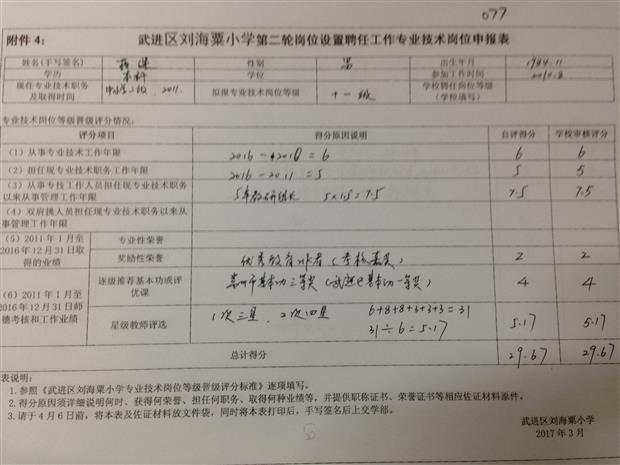 077
附件 4：
武进区刘海粟小学第二轮岗位设置聘任工作专业技术岗位申报表
姓名(手写签名) 性别 男 出生年月 1984.11
学历 本科 学位 参加工作时间 2010.8
现任专业技术职务及取得时间 2011. 拟报专业技术岗位等级 十一级 学校聘任岗位等级(学校填写)
专业技术岗位等级晋级评分情况：
评分项目 得分原因说明 自评得分 学校审核评分
（1）从事专业技术工作年限 2016-2010=6 6 6
（2）担任现专业技术职务工作年限 2016-2011=5 5 5
（3）从事专技工作人员担任现专业技术职务以来从事管理工作年限 5年教研组长 5×1.5=7.5 7.5 7.5
（4）双肩挑人员担任现专业技术职务以来从事管理工作年限
（5）2011 年 1 月至 2016 年 12 月 31 日取得的业绩
专业性荣誉
奖励性荣誉 优秀教育工作者（考核嘉奖） 2 2
（6）2011 年 1 月至 2016 年 12 月 31 日师德考核和工作业绩
逐级推荐基本功或评优课 常州市基本功三等奖（武进区基本功一等奖） 4 4
星级教师评选 1次三星，2次四星 6+8+8+3+3+3=31
31÷6=5.17 5.17 5.17
总计得分 29.67 29.67
表说明：
1.参照《武进区刘海粟小学专业技术岗位等级晋级评分标准》逐项填写。
2.得分原因须详细说明何时、获得何荣誉、担任何职务、取得何种业绩等，并提供职称证书、荣誉证书等相应佐证材料原件。
3.请于 4 月 6 日前，将本表及佐证材料放文件袋，同时将本表打印后，手写签名后上交学部。
武进区刘海粟小学
2017 年 3 月